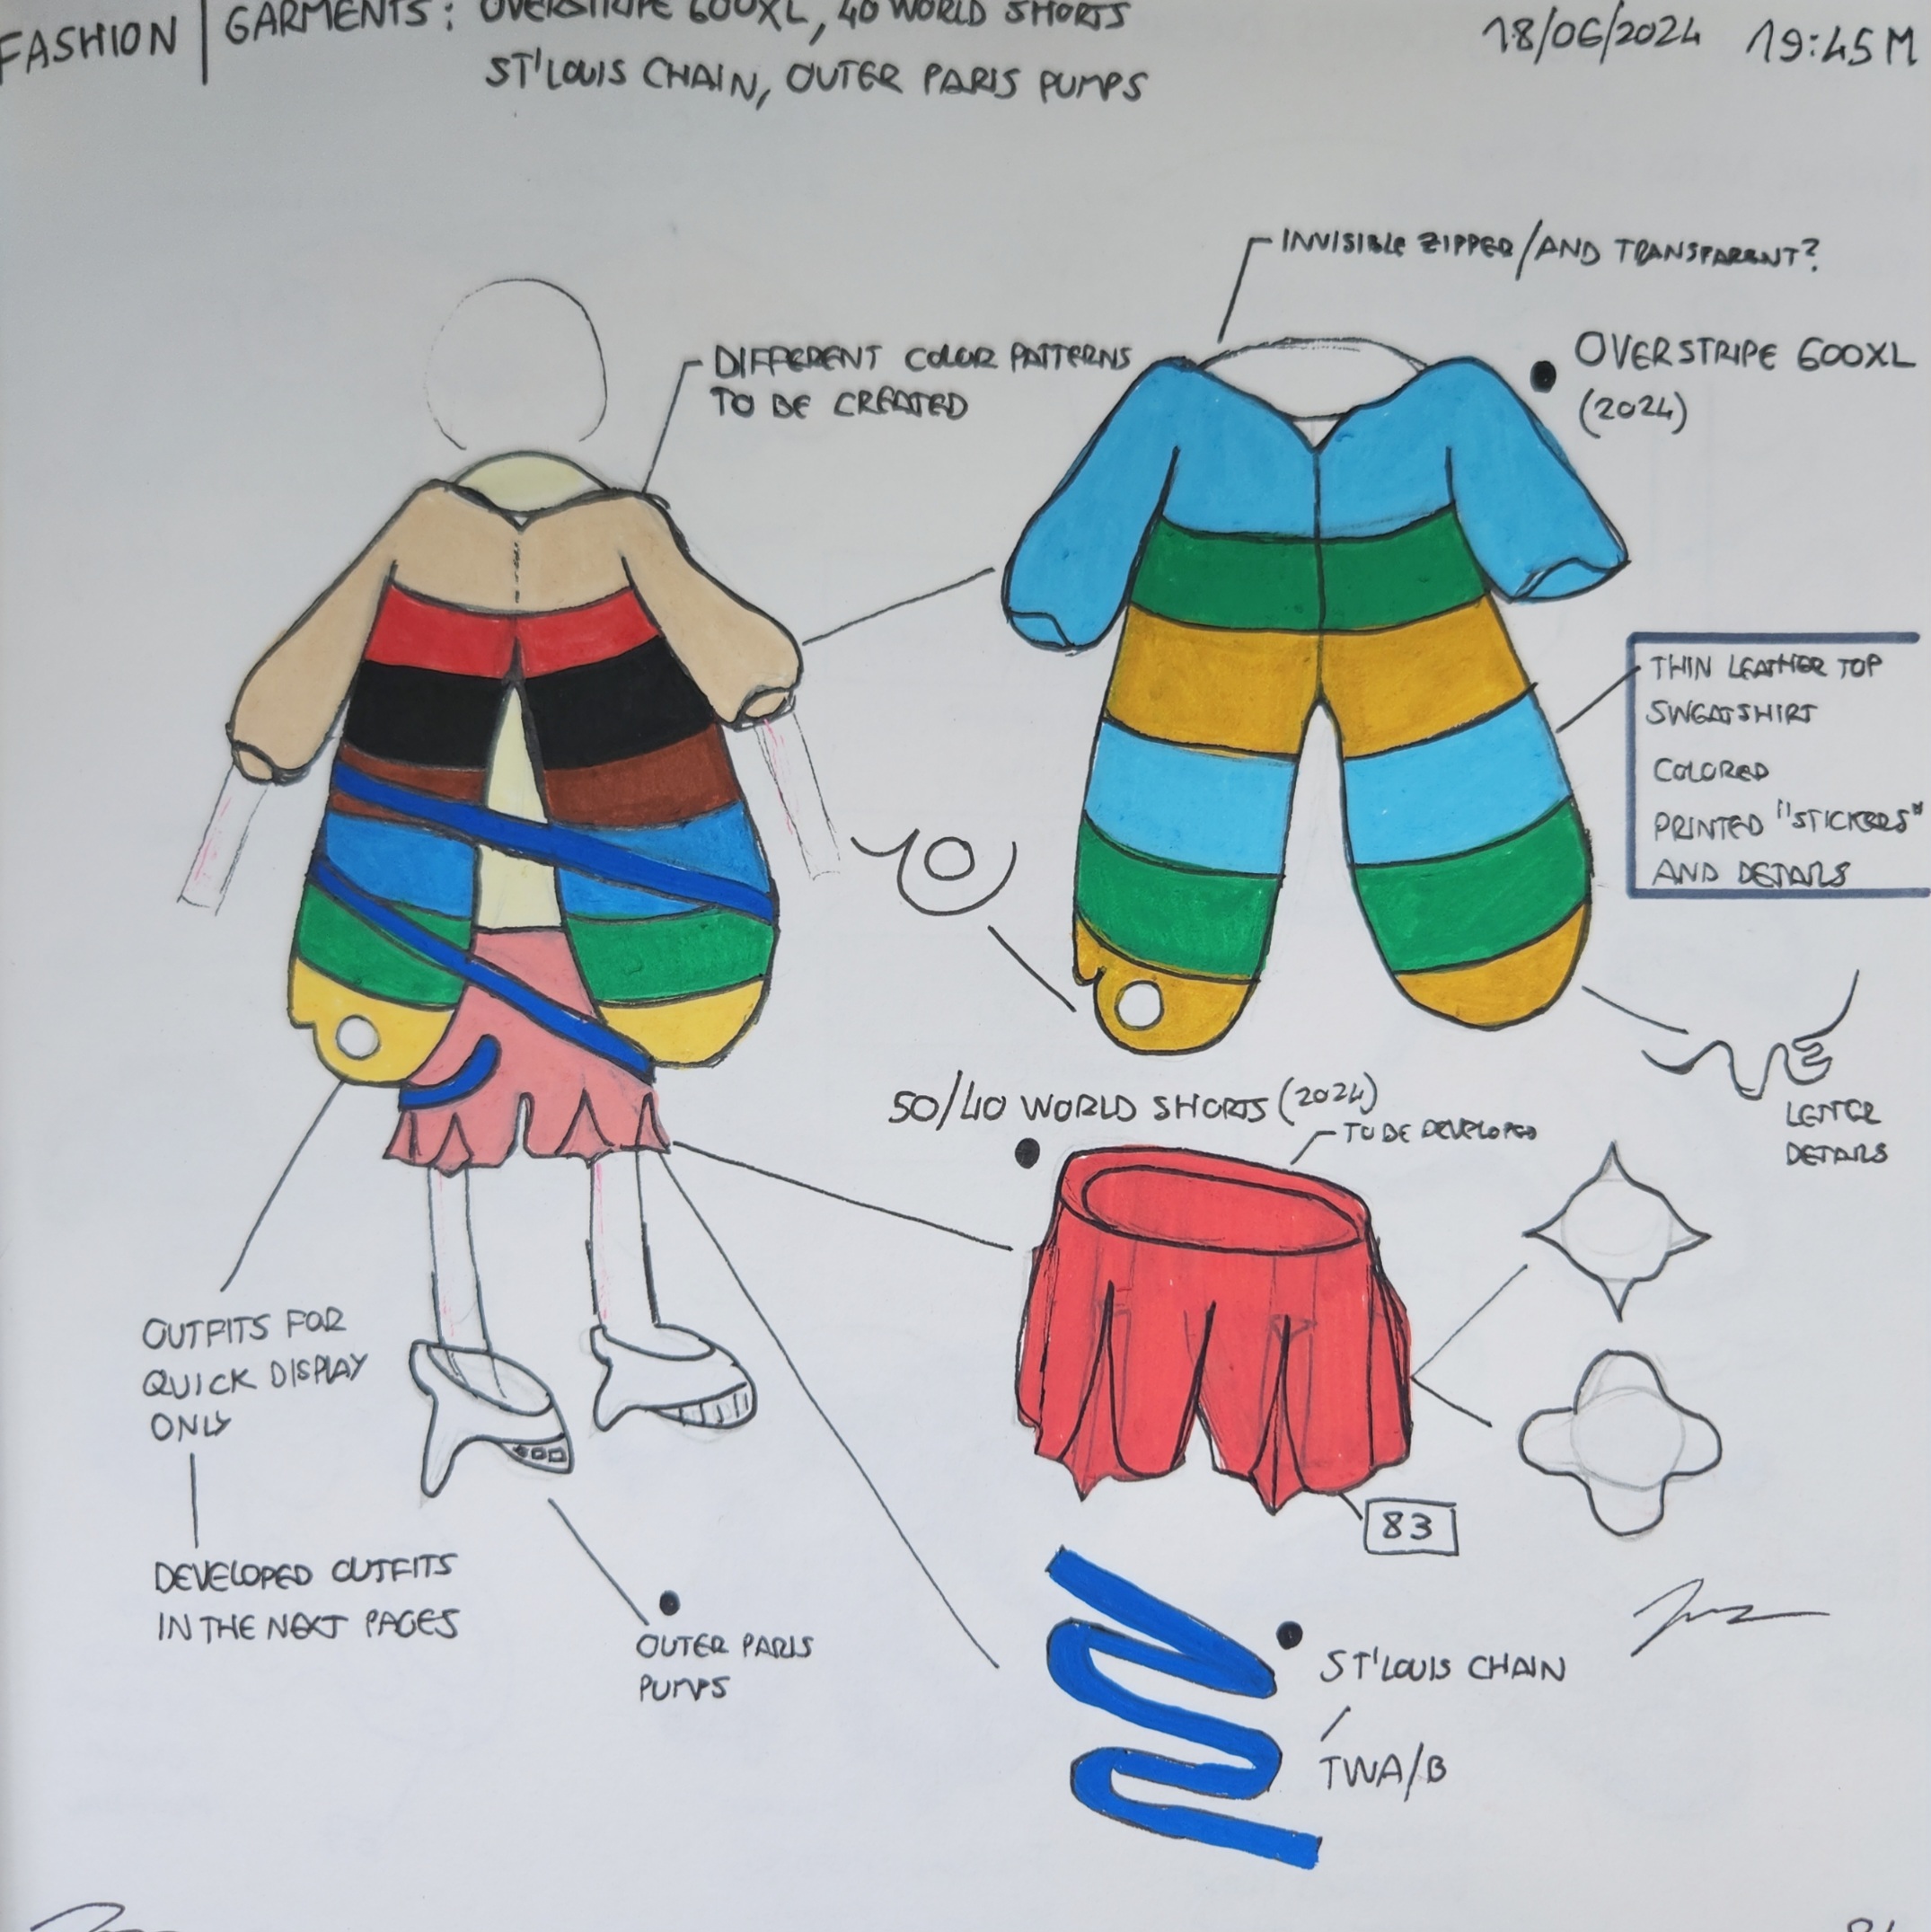 FASHION | GARMENTS: OVERSTRIPE 600XL, 40 WORLD SHORTS
ST'LOUIS CHAIN, OUTER PARIS PUMPS
18/06/2024 19:45M
INVISIBLE ZIPPER/AND TRANSPARENT?
DIFFERENT COLOR PATTERNS
TO BE CREATED
OVERSTRIPE 600XL
(2024)
THIN LEATHER TOP
SWEATSHIRT
COLORED
PRINTED "STICKERS"
AND DETAILS
LETTER
DETAILS
50/40 WORLD SHORTS (2024)
TO BE DEVELOPED
83
OUTFITS FOR
QUICK DISPLAY
ONLY
DEVELOPED OUTFITS
IN THE NEXT PAGES
OUTER PARIS
PUMPS
ST'LOUIS CHAIN
TWA/B